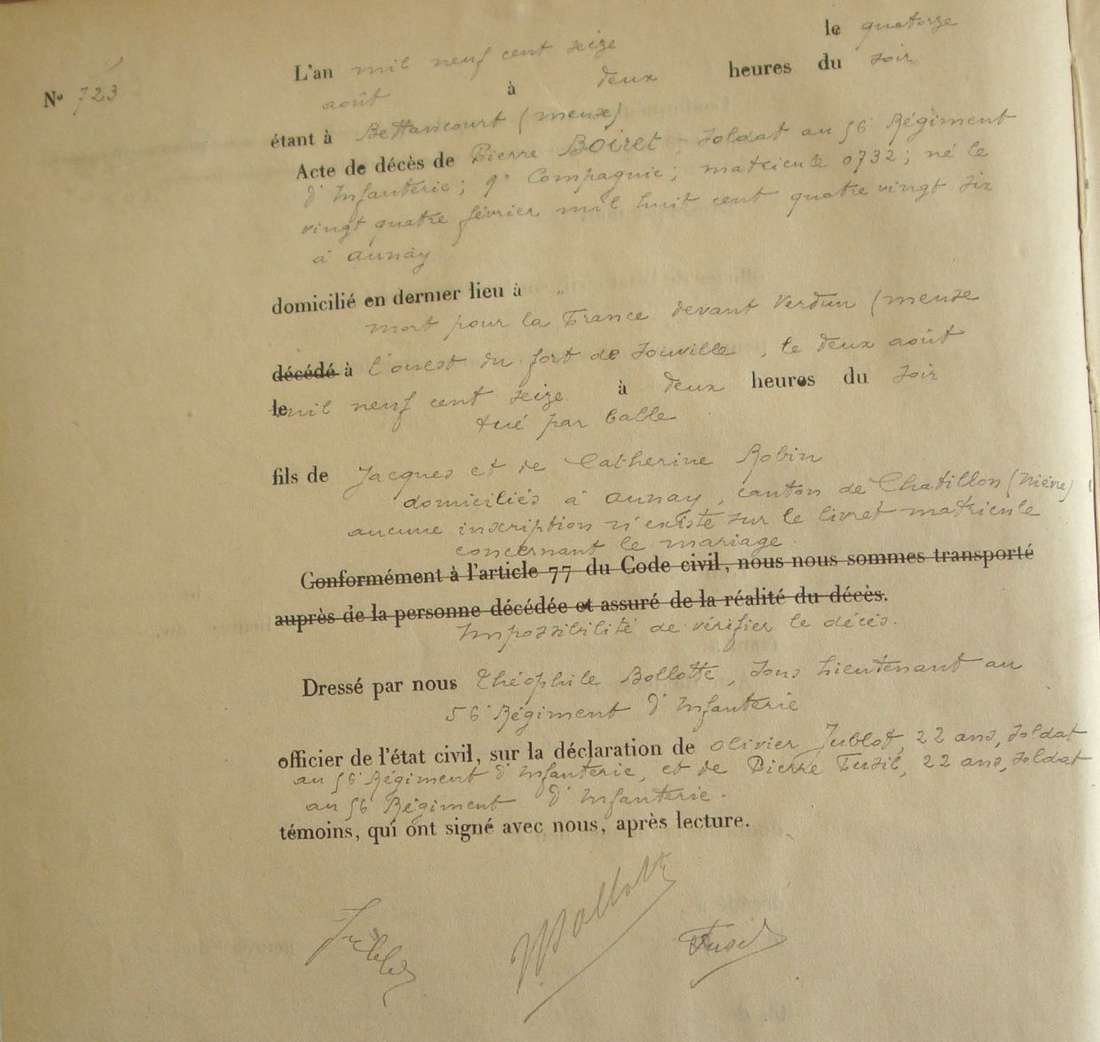 L'an mil neuf cent seize le quatorze
N° 723
août à deux heures du soir
étant à Bettancourt (meuse)
Acte de décès de Pierre Boiret, soldat au 56 Régiment
d'Infanterie; 9° Compagnie; matricule 0732; né le
vingt quatre février mil huit cent quatre vingt six
à aunay
domicilié en dernier lieu à "
mort pour la France devant Verdun (meuse
décédé à l'ouest du fort de Souville, le deux août
le mil neuf cent seize à deux heures du soir
tué par balle
fils de Jacques et de Catherine Robin
domiciliés à aunay, canton de Chatillon (Nièvre)
aucune inscription n'existe sur le livret matricule
concernant le mariage.
Conformément à l'article 77 du Code civil, nous nous sommes transporté
auprès de la personne décédée et assuré de la réalité du décès.
Impossibilité de vérifier le décès.
Dressé par nous Théophile Bollotte, sous lieutenant au
56 Régiment d'Infanterie
officier de l'état civil, sur la déclaration de olivier Jublot, 22 ans, soldat
au 56 Régiment d'Infanterie, et de Pierre Fusil, 22 ans, soldat
au 56 Régiment d'Infanterie.
témoins, qui ont signé avec nous, après lecture.
Bollotte Fusil